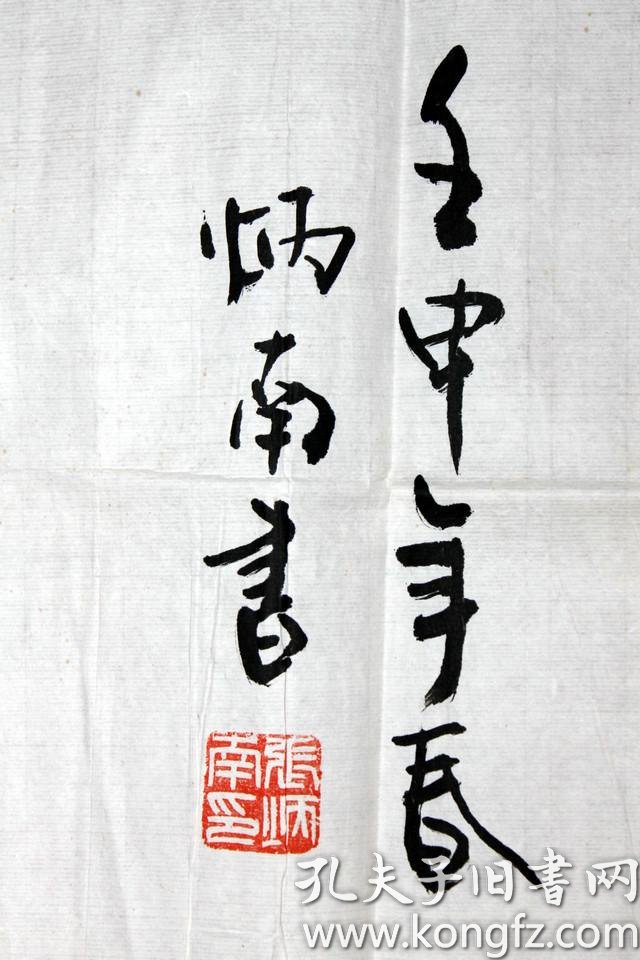 壬申年春
炳南書
張炳
南印
孔夫子旧書网
www.kongfz.com